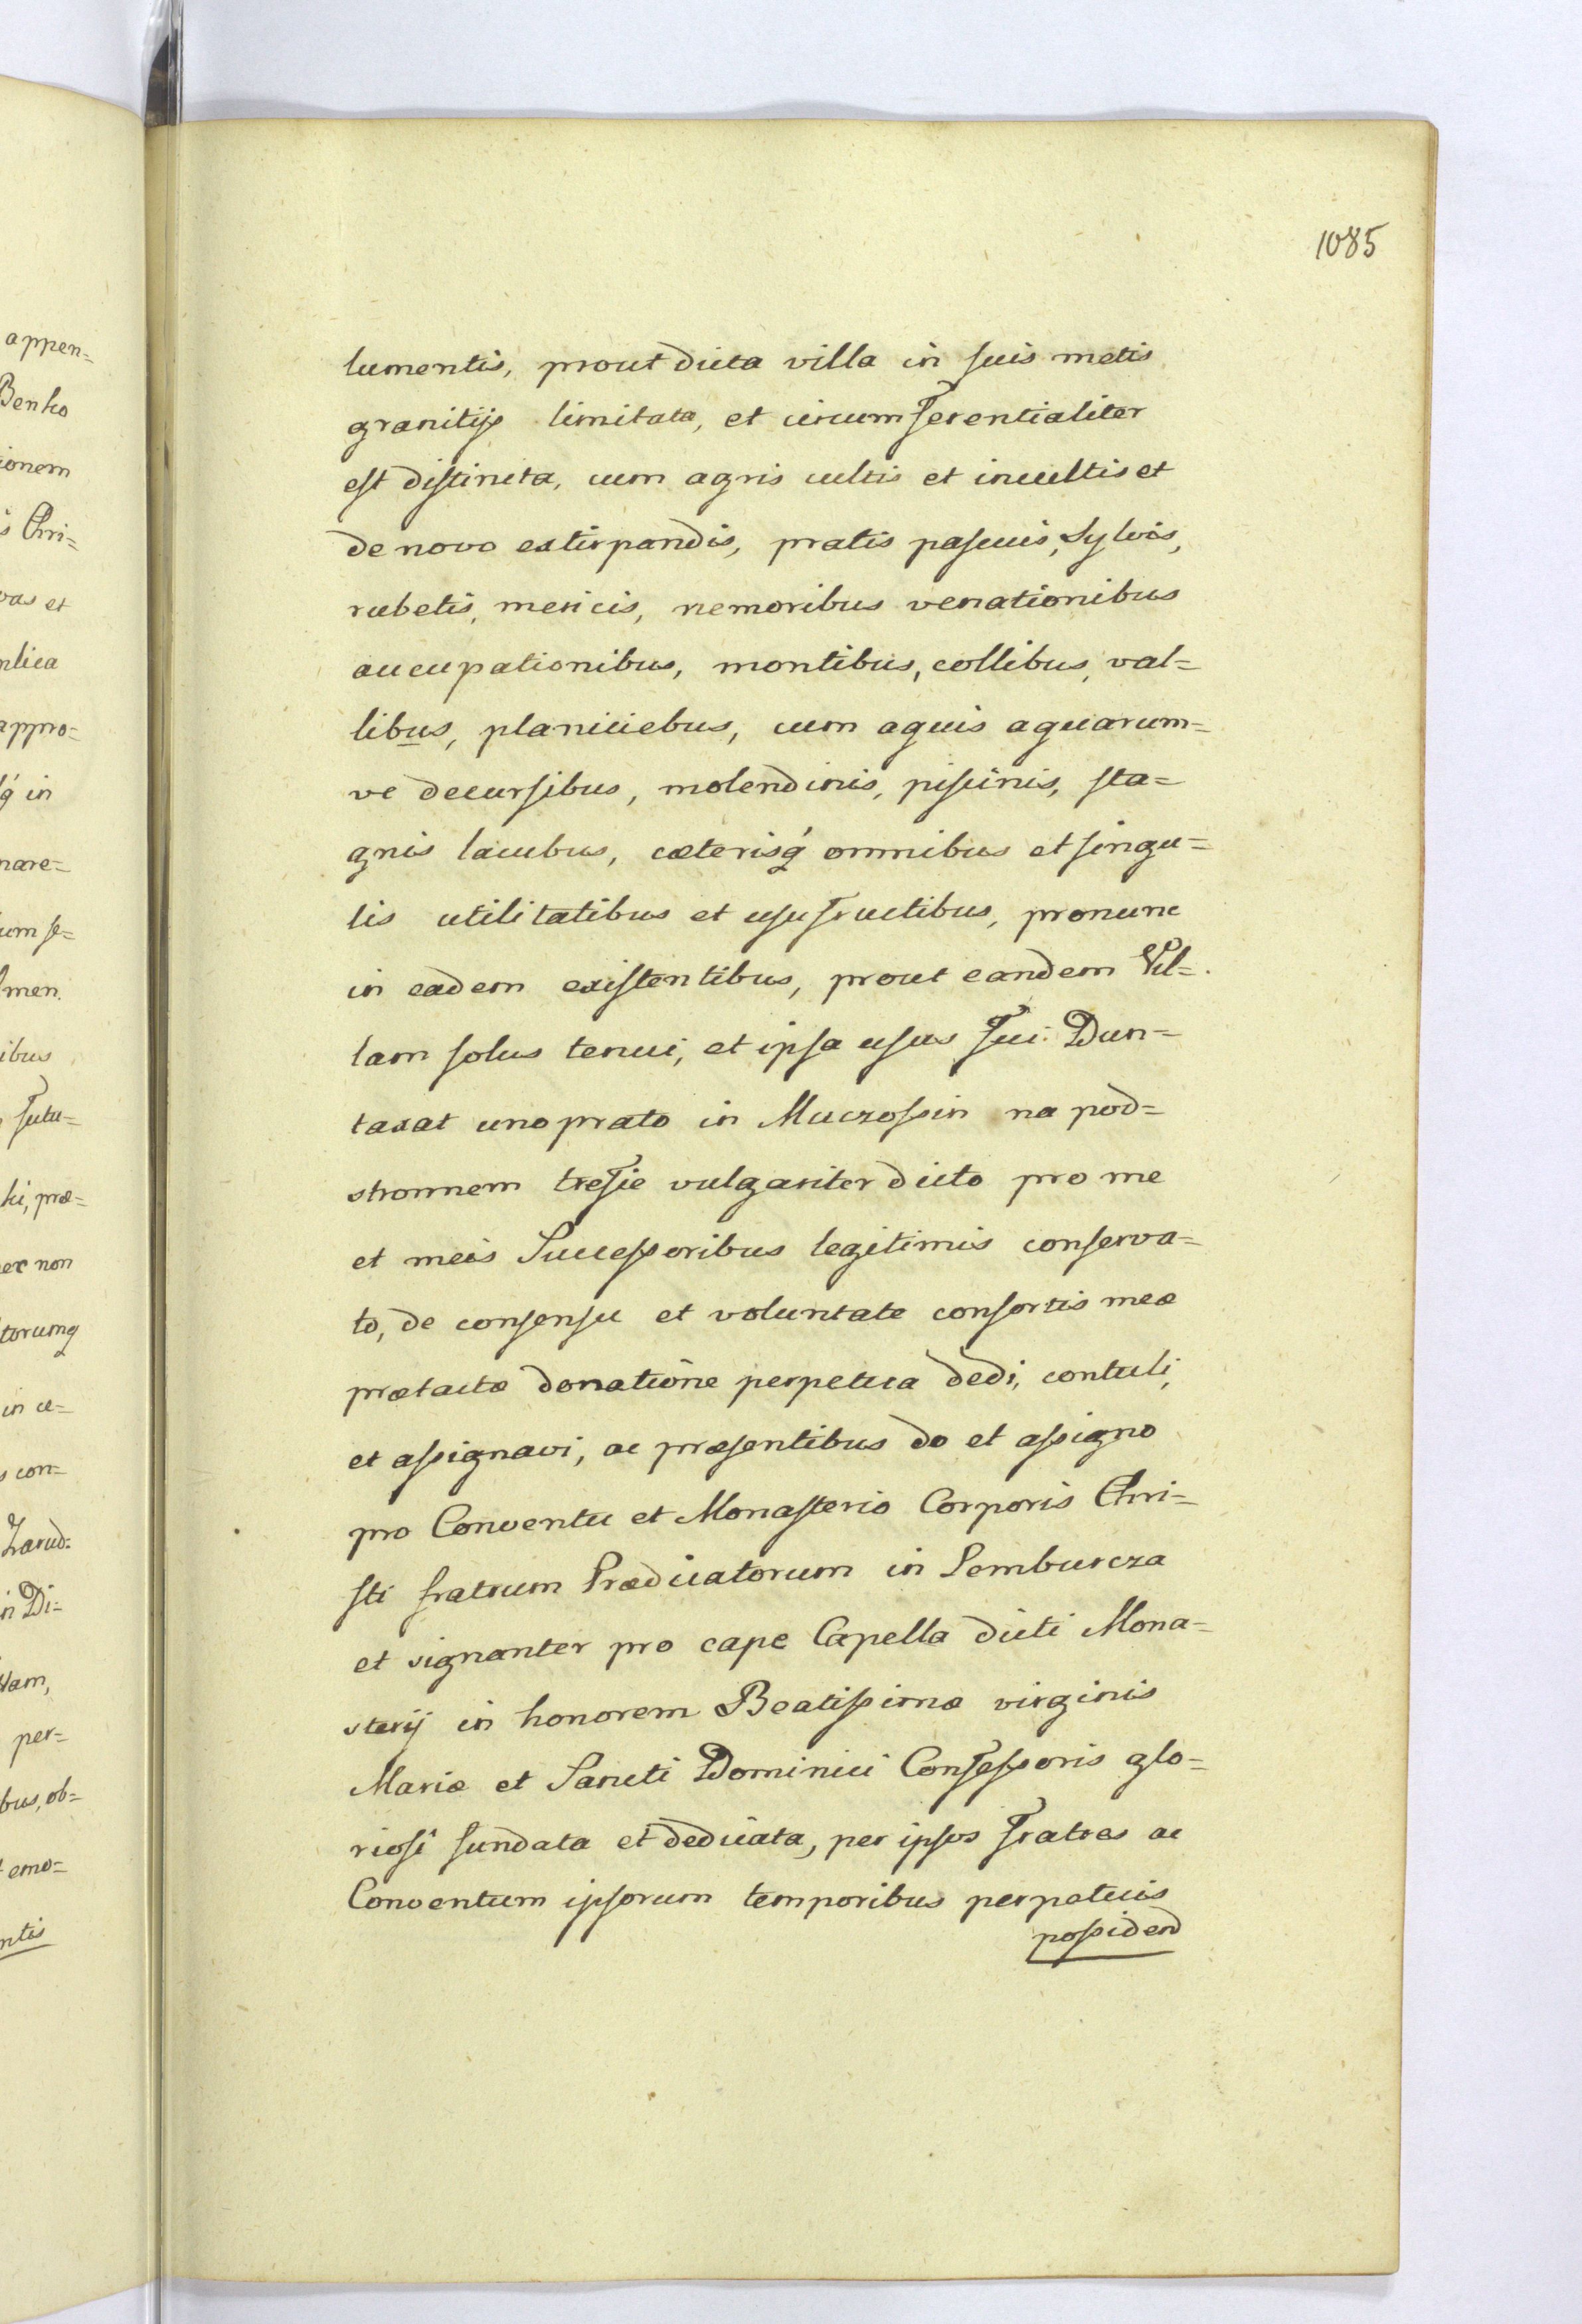 1085
lumentis, prout dicta villa in suis metis
granitijs limitata, et circumferentialiter
est distincta, cum agris cultis et incultis et
de novo extirpandis, pratis pascuis, Sylvis,
rubetis, mericis, nemoribus venationibus
aucupationibus, montibus, collibus, val=
libus, planiciebus, cum aquis aquarum=
ve decursibus, molendinis, piscinis, sta=
gnis lacubus, cæterisq́ omnibus et singu=
lis utilitatibus et usufructibus, pronunc
in eadem existentibus, prout eandem Vil=
lam solus tenui, et ipsa usus fui. Dun=
taxat uno prato in Muczossin na pod=
stronnem trefie vulgariter dicto pro me
et meis Successoribus legitimis conserva=
to, de consensu et voluntate consortis meæ
prætactæ donatione perpetua dedi, contuli,
et assignavi, ac præsentibus do et assigno
pro Conventu et Monasterio Corporis Chri=
sti fratrum Prædicatorum in Lemburcza
et signanter pro cape Capella dicti Mona=
sterij in honorem Beatissimæ virginis
Mariæ et Sancti Dominici Confessoris glo=
riosi fundata et dedicata, per ipsos fratres ac
Conventum ipsorum temporibus perpetuis
possidend
appen=
Benko
ionem
s Chri=
vas et
nlica
appro=
q́ in
nare=
um se=
men.
ibus
futu=
ki, præ=
er non
torumq
in u=
s con=
Zarud:
in Di=
tam,
per=
bus, ob=
emo=
ntis